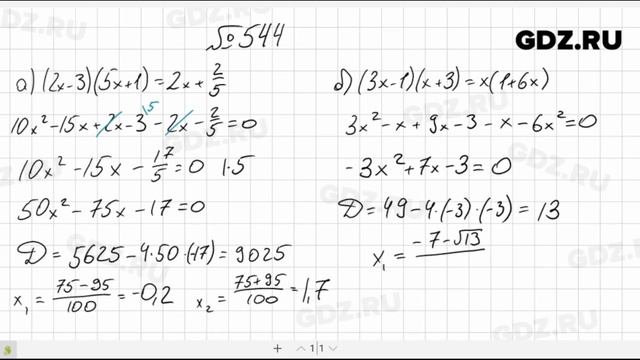 №544
GDZ.RU
а) (2x-3)(5x+1)=2x+2/5
10x²-15x+2x-3\⁵-2x-2/5=0
10x²-15x-17/5=0 |·5
50x²-75x-17=0
D=5625-4·50·(-17)=9025
x₁=(75-95)/100=-0,2 x₂=(75+95)/100=1,7
б) (3x-1)(x+3)=x(1+6x)
3x²-x+9x-3-x-6x²=0
-3x²+7x-3=0
D=49-4·(-3)·(-3)=13
x₁=(-7-√13)/
+ 1|1